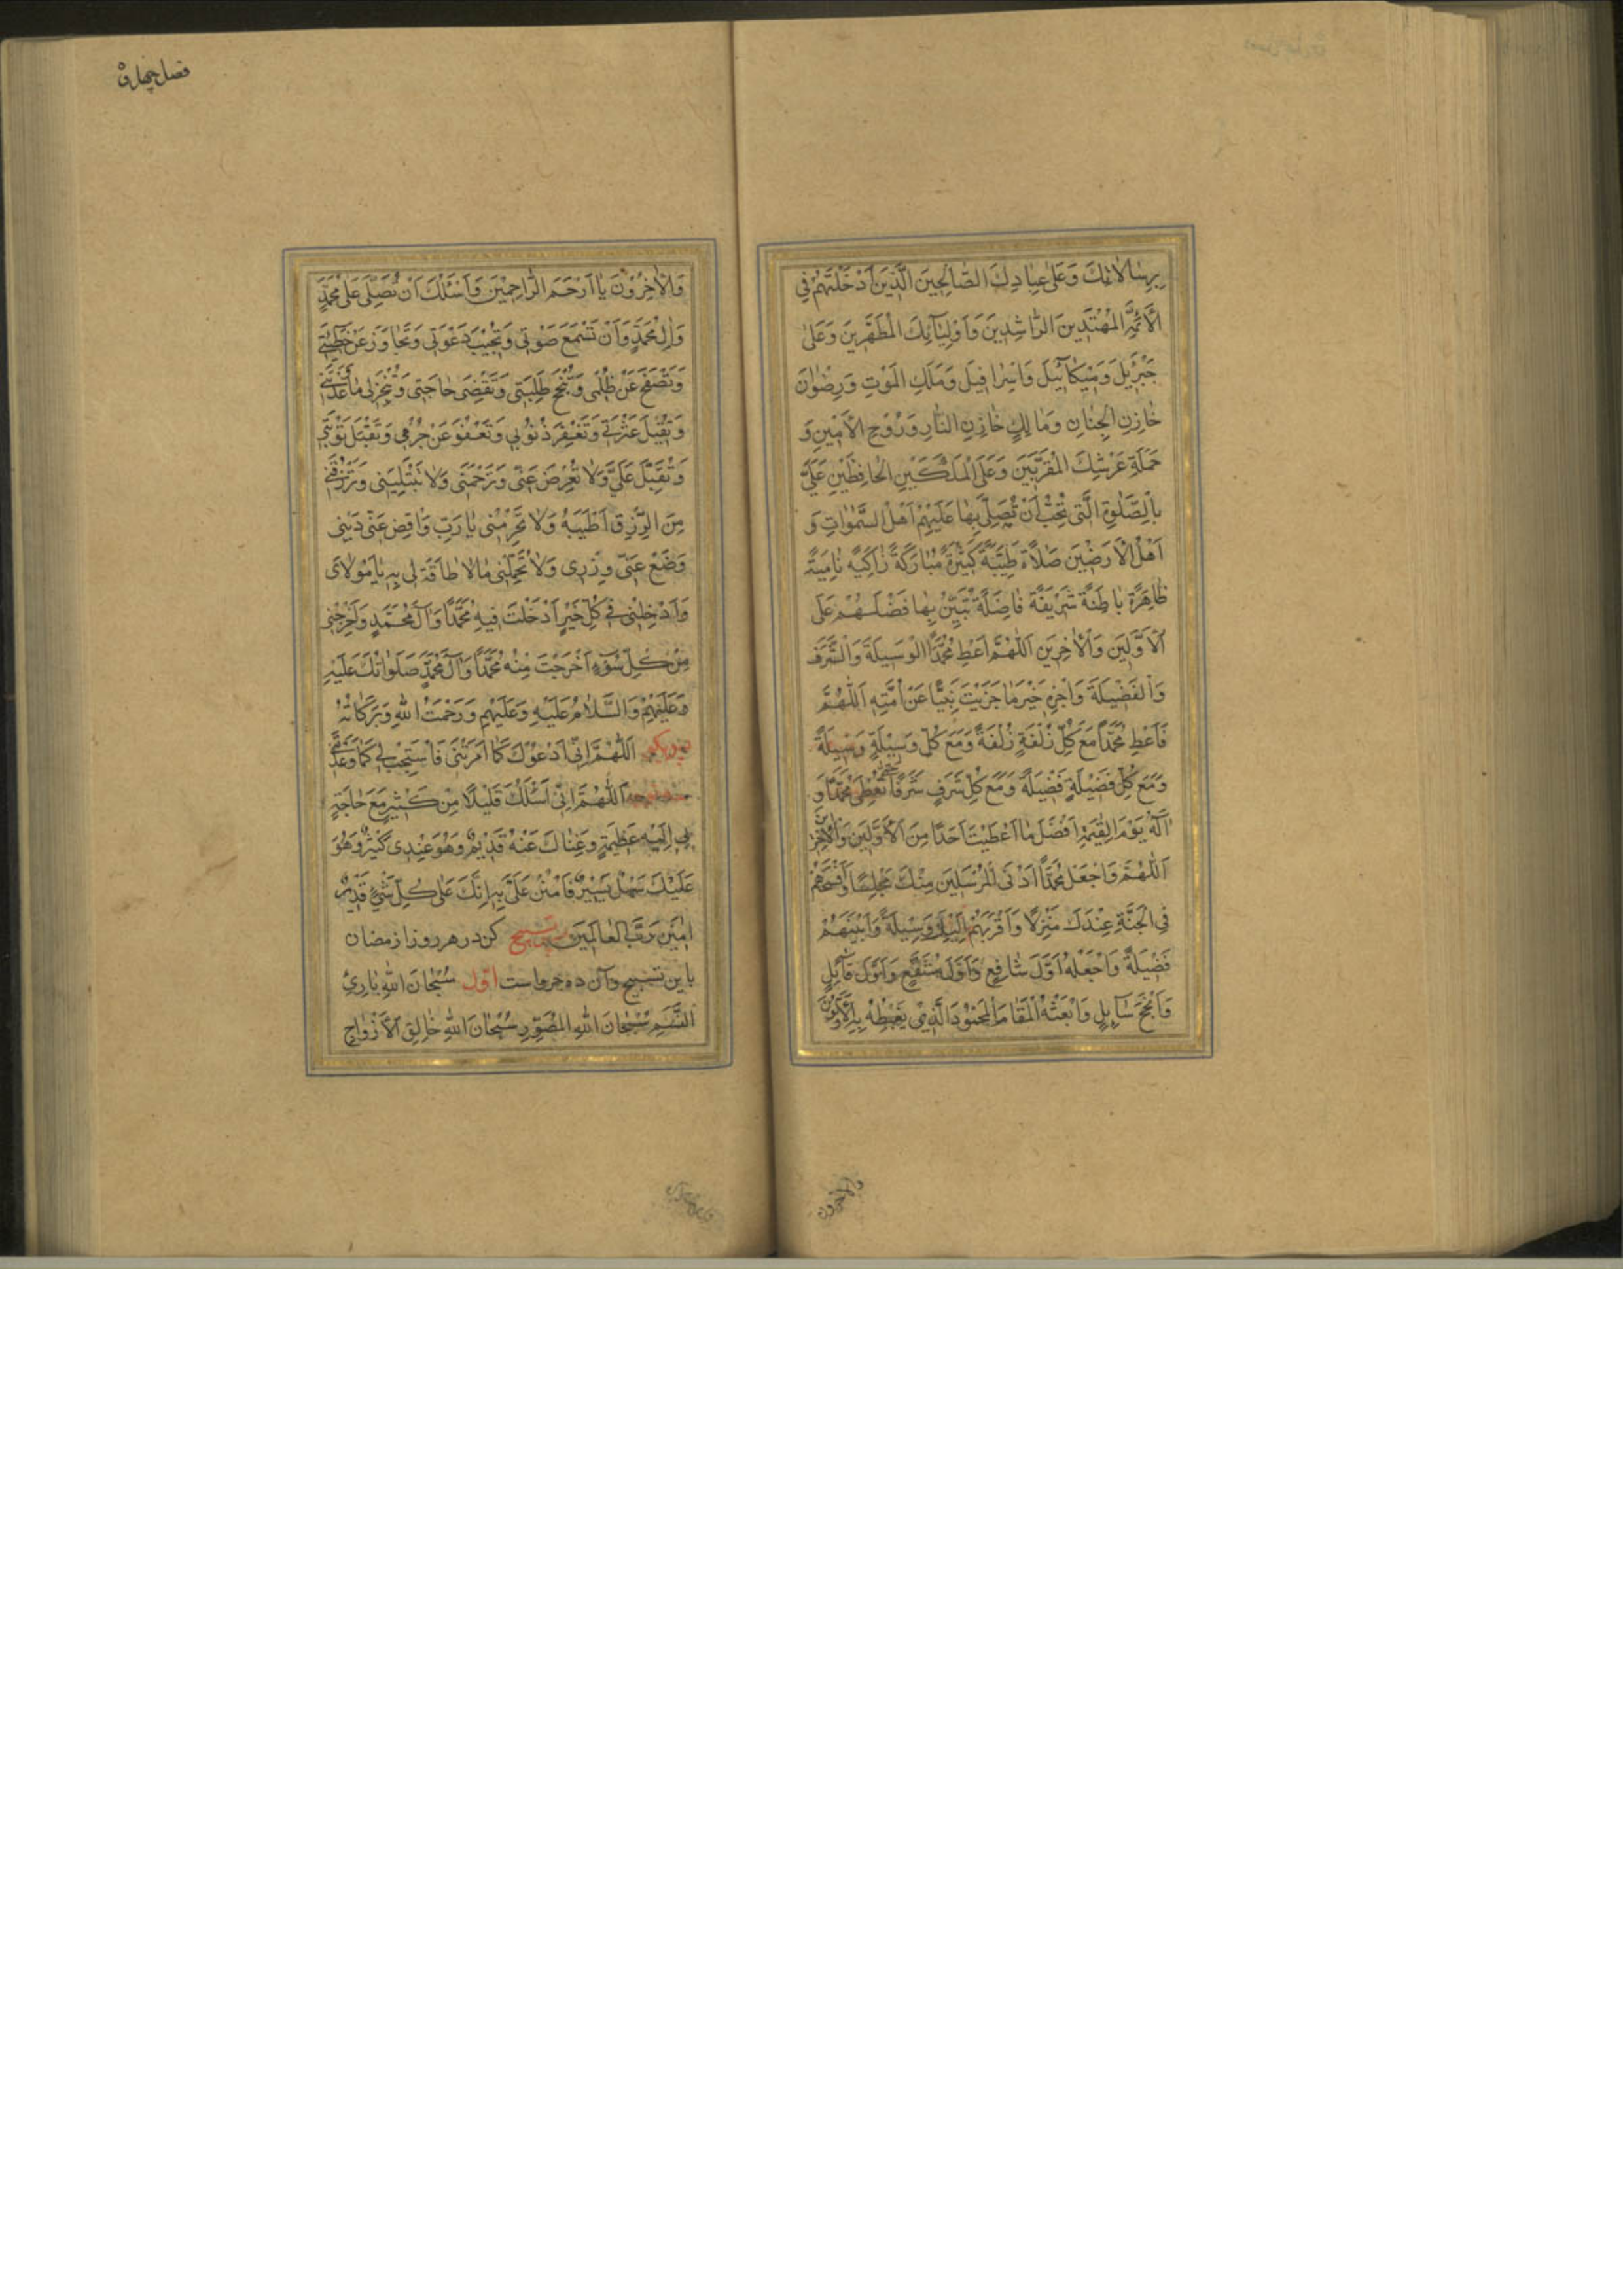 بِرِسٰالٰاتِكَ وَعَلىٰ عِبٰادِكَ الصّٰالِحِينَ الَّذِينَ اَدْخَلْتَهُمْ فِي
الْاَئِمَّةِ الْمُهْتَدِينَ الرّٰاشِدِينَ وَاَوْلِيٰآئِكَ الْمُطَهَّرِينَ وَعَلىٰ
جَبْرَئِيلَ وَمِيكٰآئِيلَ وَاِسْرٰافِيلَ وَمَلَكِ الْمَوْتِ وَرِضْوٰانَ
خٰازِنِ الْجِنٰانِ وَمٰالِكٍ خٰازِنِ النّٰارِ وَرُوْحِ الْاَمِينِ وَ
حَمَلَةِ عَرْشِكَ الْمُقَرَّبِينَ وَعَلَى الْمَلَكَيْنِ الْحٰافِظَيْنِ عَلَيَّ
بِالصَّلٰوةِ الَّتِي تُحِبُّ اَنْ تُصَلِّيَ بِهٰا عَلَيْهِمْ اَهْلُ السَّمٰوٰاتِ وَ
اَهْلُ الْاَرَضِينَ صَلٰاةً طَيِّبَةً كَثِيْرَةً مُبٰارَكَةً زٰاكِيَةً نٰامِيَةً
ظٰاهِرَةً بٰاطِنَةً شَرِيْفَةً فٰاضِلَةً تُبَيِّنُ بِهٰا فَضْلَهُمْ عَلَى
الْاَوَّلِينَ وَالْاٰخِرِينَ اَللّٰهُمَّ اَعْطِ مُحَمَّدًا الْوَسِيلَةَ وَالشَّرَفَ
وَالْفَضِيلَةَ وَاجْزِهِ خَيْرَ مٰا جَزَيْتَ نَبِيًّا عَنْ اُمَّتِهِ اَللّٰهُمَّ
فَاَعْطِ مُحَمَّدًا مَعَ كُلِّ زُلْفَةٍ زُلْفَةً وَمَعَ كُلِّ وَسِيْلَةٍ وَسِيلَةً
وَمَعَ كُلِّ فَضِيْلَةٍ فَضِيلَةً وَمَعَ كُلِّ شَرَفٍ شَرَفًا تُعْطِي مُحَمَّدًا وَ
اٰلَهُ يَوْمَ الْقِيٰمَةِ اَفْضَلَ مٰا اَعْطَيْتَ اَحَدًا مِنَ الْاَوَّلِينَ وَالْاٰخِرِينَ
اَللّٰهُمَّ وَاجْعَلْ مُحَمَّدًا اَدْنَى الْمُرْسَلِينَ مِنْكَ مَجْلِسًا وَاَفْسَحَهُمْ
فِي الْجَنَّةِ عِنْدَكَ مَنْزِلًا وَاَقْرَبَهُمْ اِلَيْكَ وَسِيلَةً وَاَبْيَنَهُمْ
فَضِيلَةً وَاجْعَلْهُ اَوَّلَ شٰافِعٍ وَاَوَّلَ مُشَفَّعٍ وَاَوَّلَ قٰائِلٍ
وَاَنْجَحَ سٰآئِلٍ وَابْعَثْهُ الْمَقٰامَ الْمَحْمُوْدَ الَّذِيْ يَغْبِطُهُ بِهِ الْاَوَّلُوْنَ
والاخرون
فصل چهارم
وَالْاٰخِرُوْنَ يٰا اَرْحَمَ الرّٰاحِمِيْنَ وَاَسْئَلُكَ اَنْ تُصَلِّيَ عَلىٰ مُحَمَّدٍ
وَاٰلِ مُحَمَّدٍ وَاَنْ تَسْمَعَ صَوْتِي وَتُجِيْبَ دَعْوَتِي وَتَجٰاوَزَ عَنْ خَطِيْئَتِي
وَتَصْفَحَ عَنْ ظُلْمِي وَتُنْجِحَ طَلِبَتِي وَتَقْضِيَ حٰاجَتِي وَتُنْجِزَ لِي مٰا وَعَدْتَنِي
وَتُقِيْلَ عَثْرَتِي وَتَغْفِرَ ذُنُوْبِي وَتَعْفُوَ عَنْ جُرْمِي وَتَقْبَلَ تَوْبَتِي
وَتُقْبِلَ عَلَيَّ وَلٰا تُعْرِضَ عَنِّي وَتَرْحَمَنِي وَلٰا تَبْتَلِيَنِي وَتَرْزُقَنِي
مِنَ الرِّزْقِ اَطْيَبَهُ وَلٰا تَحْرِمْنِي يٰا رَبِّ وَاقْضِ عَنِّي دَيْنِي
وَضَعْ عَنِّي وِزْرِي وَلٰا تُحَمِّلْنِي مٰا لٰا طٰاقَةَ لِي بِهِ يٰا مَوْلٰايَ
وَاَدْخِلْنِي فِي كُلِّ خَيْرٍ اَدْخَلْتَ فِيهِ مُحَمَّدًا وَاٰلَ مُحَمَّدٍ وَاَخْرِجْنِي
مِنْ كُلِّ سُوْءٍ اَخْرَجْتَ مِنْهُ مُحَمَّدًا وَاٰلَ مُحَمَّدٍ صَلَوٰاتُكَ عَلَيْهِ
وَعَلَيْهِمْ وَالسَّلٰامُ عَلَيْهِ وَعَلَيْهِمْ وَرَحْمَتُ اللّٰهِ وَبَرَكٰاتُهُ
اَللّٰهُمَّ اِنِّي اَدْعُوْكَ كَمٰا اَمَرْتَنِي فَاسْتَجِبْ لِي كَمٰا وَعَدْتَنِي
اَللّٰهُمَّ اِنِّي اَسْئَلُكَ قَلِيْلًا مِنْ كَثِيْرٍ مَعَ حٰاجَةٍ
بِي اِلَيْهِ عَظِيْمَةٍ وَغِنٰاكَ عَنْهُ قَدِيْمٌ وَهُوَ عِنْدِي كَثِيْرٌ وَهُوَ
عَلَيْكَ سَهْلٌ يَسِيْرٌ فَامْنُنْ عَلَيَّ بِهِ اِنَّكَ عَلىٰ كُلِّ شَيْءٍ قَدِيْرٌ
اٰمِيْنَ رَبَّ الْعٰالَمِيْنَ پس تسبيح كن در هر روز از رمضان
باين تسبيح وآن ده جزو است اوّل سُبْحٰانَ اللّٰهِ بٰارِئِ
النَّسَمِ سُبْحٰانَ اللّٰهِ الْمُصَوِّرِ سُبْحٰانَ اللّٰهِ خٰالِقِ الْاَزْوٰاجِ